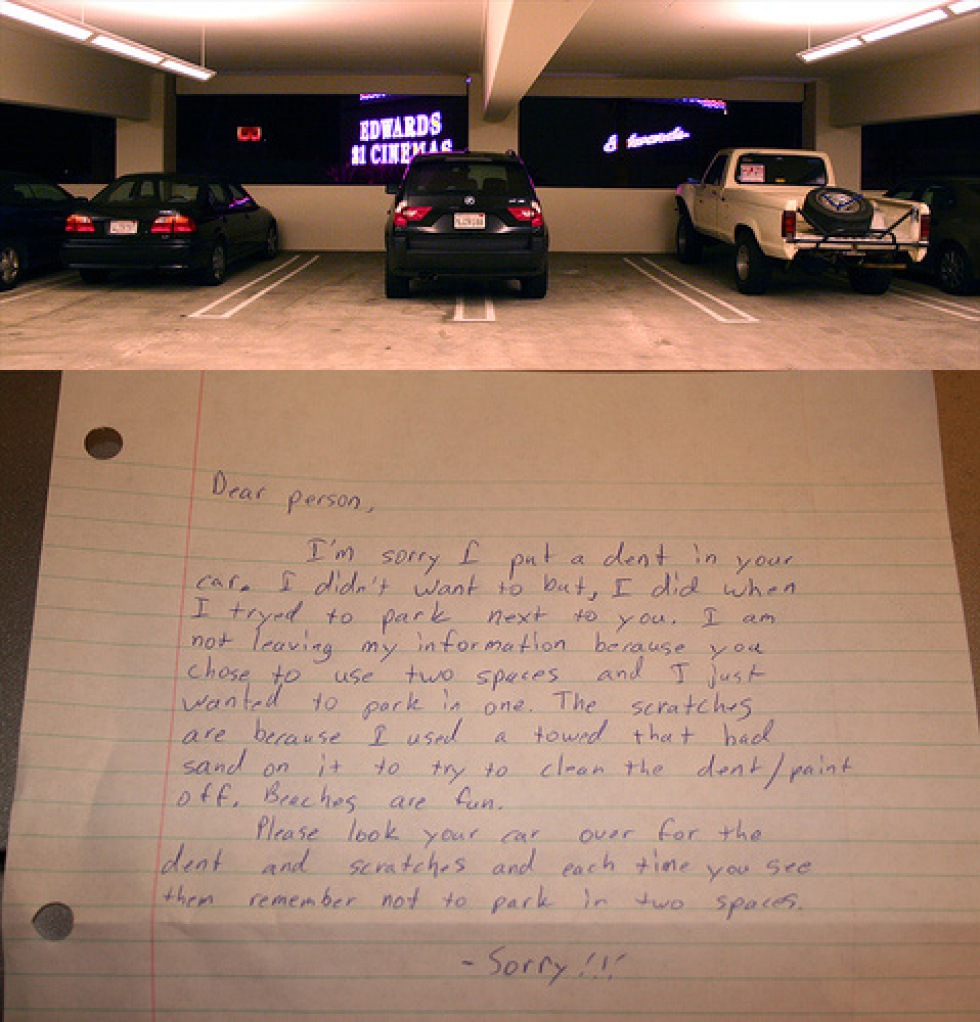 EDWARDS
21 CINEMAS
Edwards
Dear person,
I'm sorry I put a dent in your
car. I didn't want to but, I did when
I tryed to park next to you. I am
not leaving my information because you
chose to use two spaces and I just
wanted to park in one. The scratches
are because I used a towed that had
sand on it to try to clean the dent/paint
off. Beaches are fun.
Please look your car over for the
dent and scratches and each time you see
them remember not to park in two spaces.
- Sorry!!!